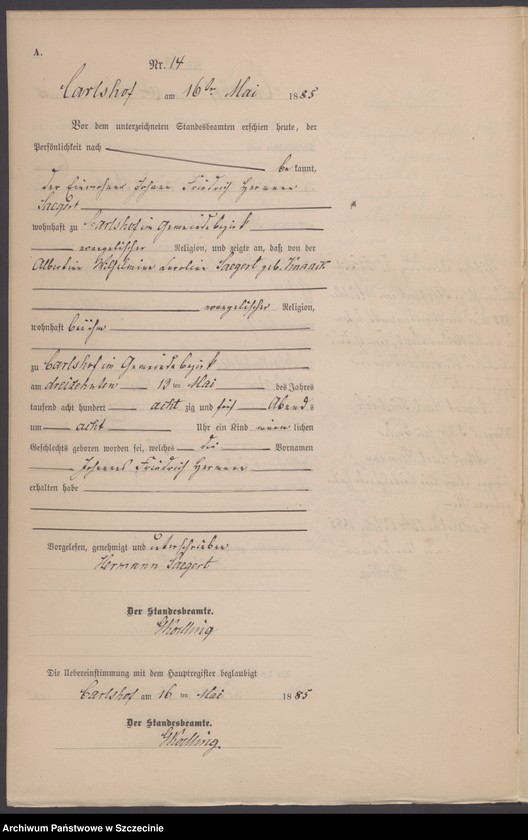 A.
Nr. 14
Carlshof am 16ten Mai 1885
Vor dem unterzeichneten Standesbeamten erschien heute, der
Persönlichkeit nach
be kannt,
der Einwohner Johann Friedrich Hermann
Saegert
wohnhaft zu Carlshof im Gemeindebezirk
evangelischer Religion, und zeigte an, daß von der
Albertine Wilhelmine Caroline Saegert geb. Knaack
evangelischer Religion,
wohnhaft bei ihm
zu Carlshof im Gemeindebezirk
am dreizehnten 13 ten Mai des Jahres
tausend acht hundert acht zig und fünf Abends
um acht Uhr ein Kind männlichen
Geschlechts geboren worden sei, welches die Vornamen
Johannes Friedrich Hermann
erhalten habe
Vorgelesen, genehmigt und unterschrieben
Hermann Saegert
Der Standesbeamte.
Die Uebereinstimmung mit dem Hauptregister beglaubigt
Carlshof am 16 ten Mai 1885
Der Standesbeamte.
Archiwum Państwowe w Szczecinie